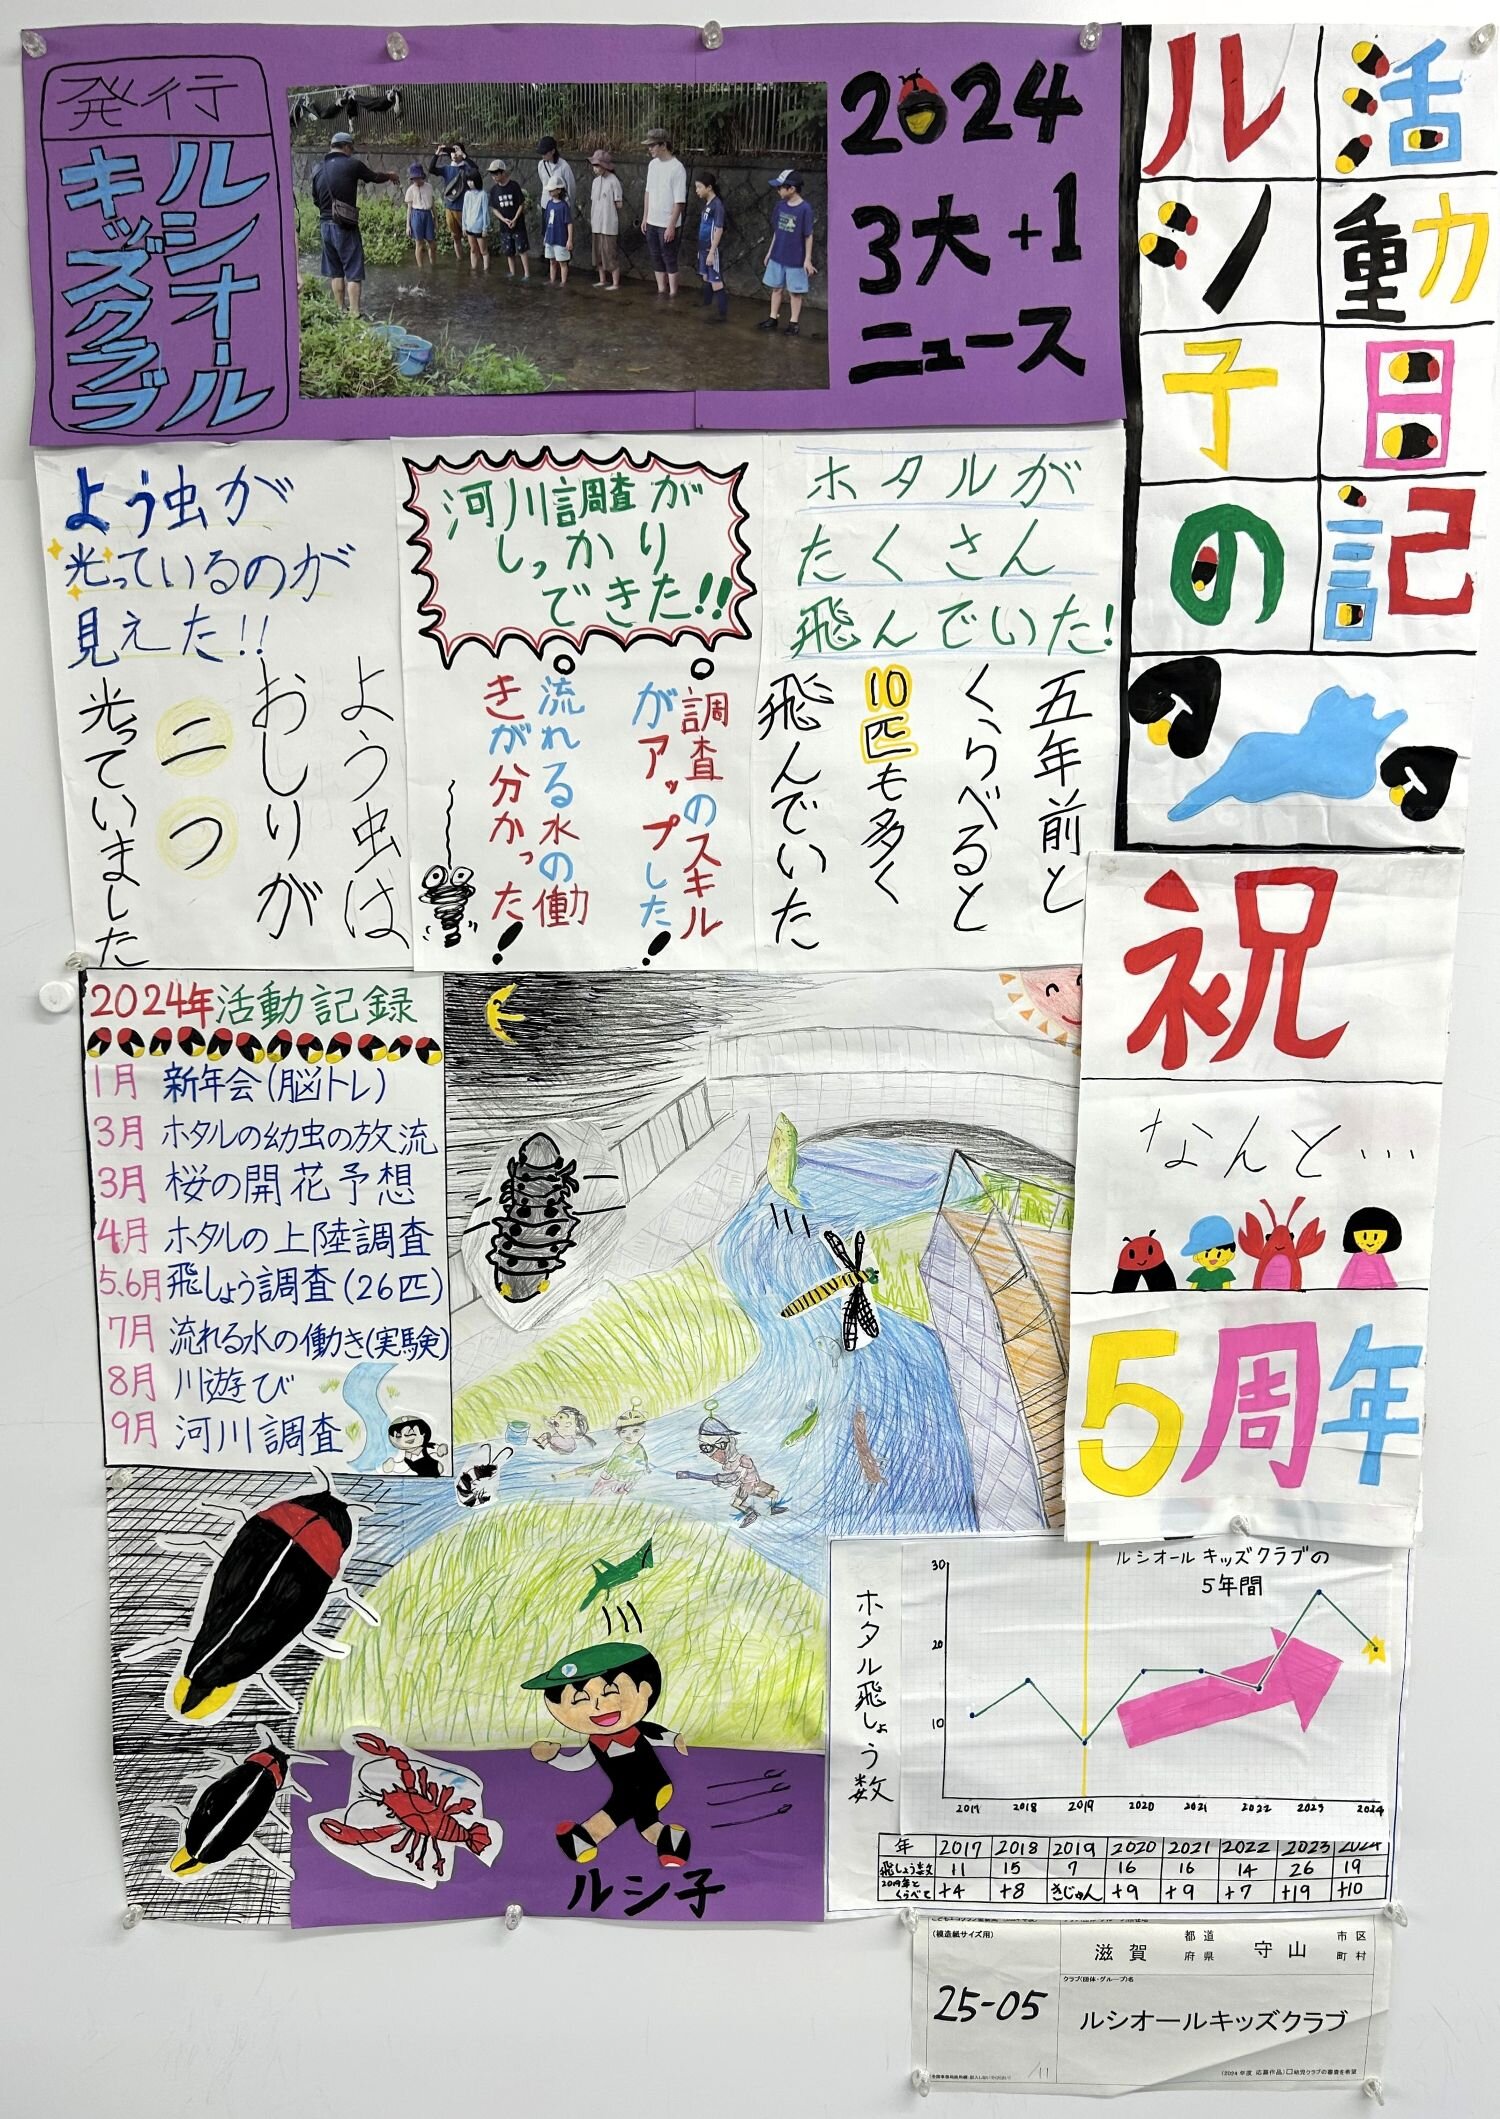 ルシ子の
活動日記
発行
ルシオール
キッズクラブ
2024
3大+1
ニュース
ホタルが
たくさん
飛んでいた!
五年前と
くらべると
10匹も多く
飛んでいた
河川調査が
しっかり
できた!!
調査のスキル
がアップした!
流れる水の働
きが分かった!
よう虫が
光っているのが
見えた!!
よう虫は
おしりが
二つ
光っていました
祝
なんと…
5周年
2024年活動記録
1月 新年会(脳トレ)
3月 ホタルの幼虫の放流
3月 桜の開花予想
4月 ホタルの上陸調査
5.6月 飛しょう調査(26匹)
7月 流れる水の働き(実験)
8月 川遊び
9月 河川調査
ルシ子
ルシオールキッズクラブの
5年間
ホタル飛しょう数
30
20
10
2017 2018 2019 2020 2021 2022 2023 2024
年 2017 2018 2019 2020 2021 2022 2023 2024
飛しょう数 11 15 7 16 16 14 26 19
2019年と
くらべて +4 +8 きじゅん +9 +9 +7 +19 +10
(模造紙サイズ用)
25-05
滋賀 都道府県 守山 市区町村
クラブ(団体・グループ)名
ルシオールキッズクラブ
(2024年度 応募作品)□幼児クラブの審査を希望